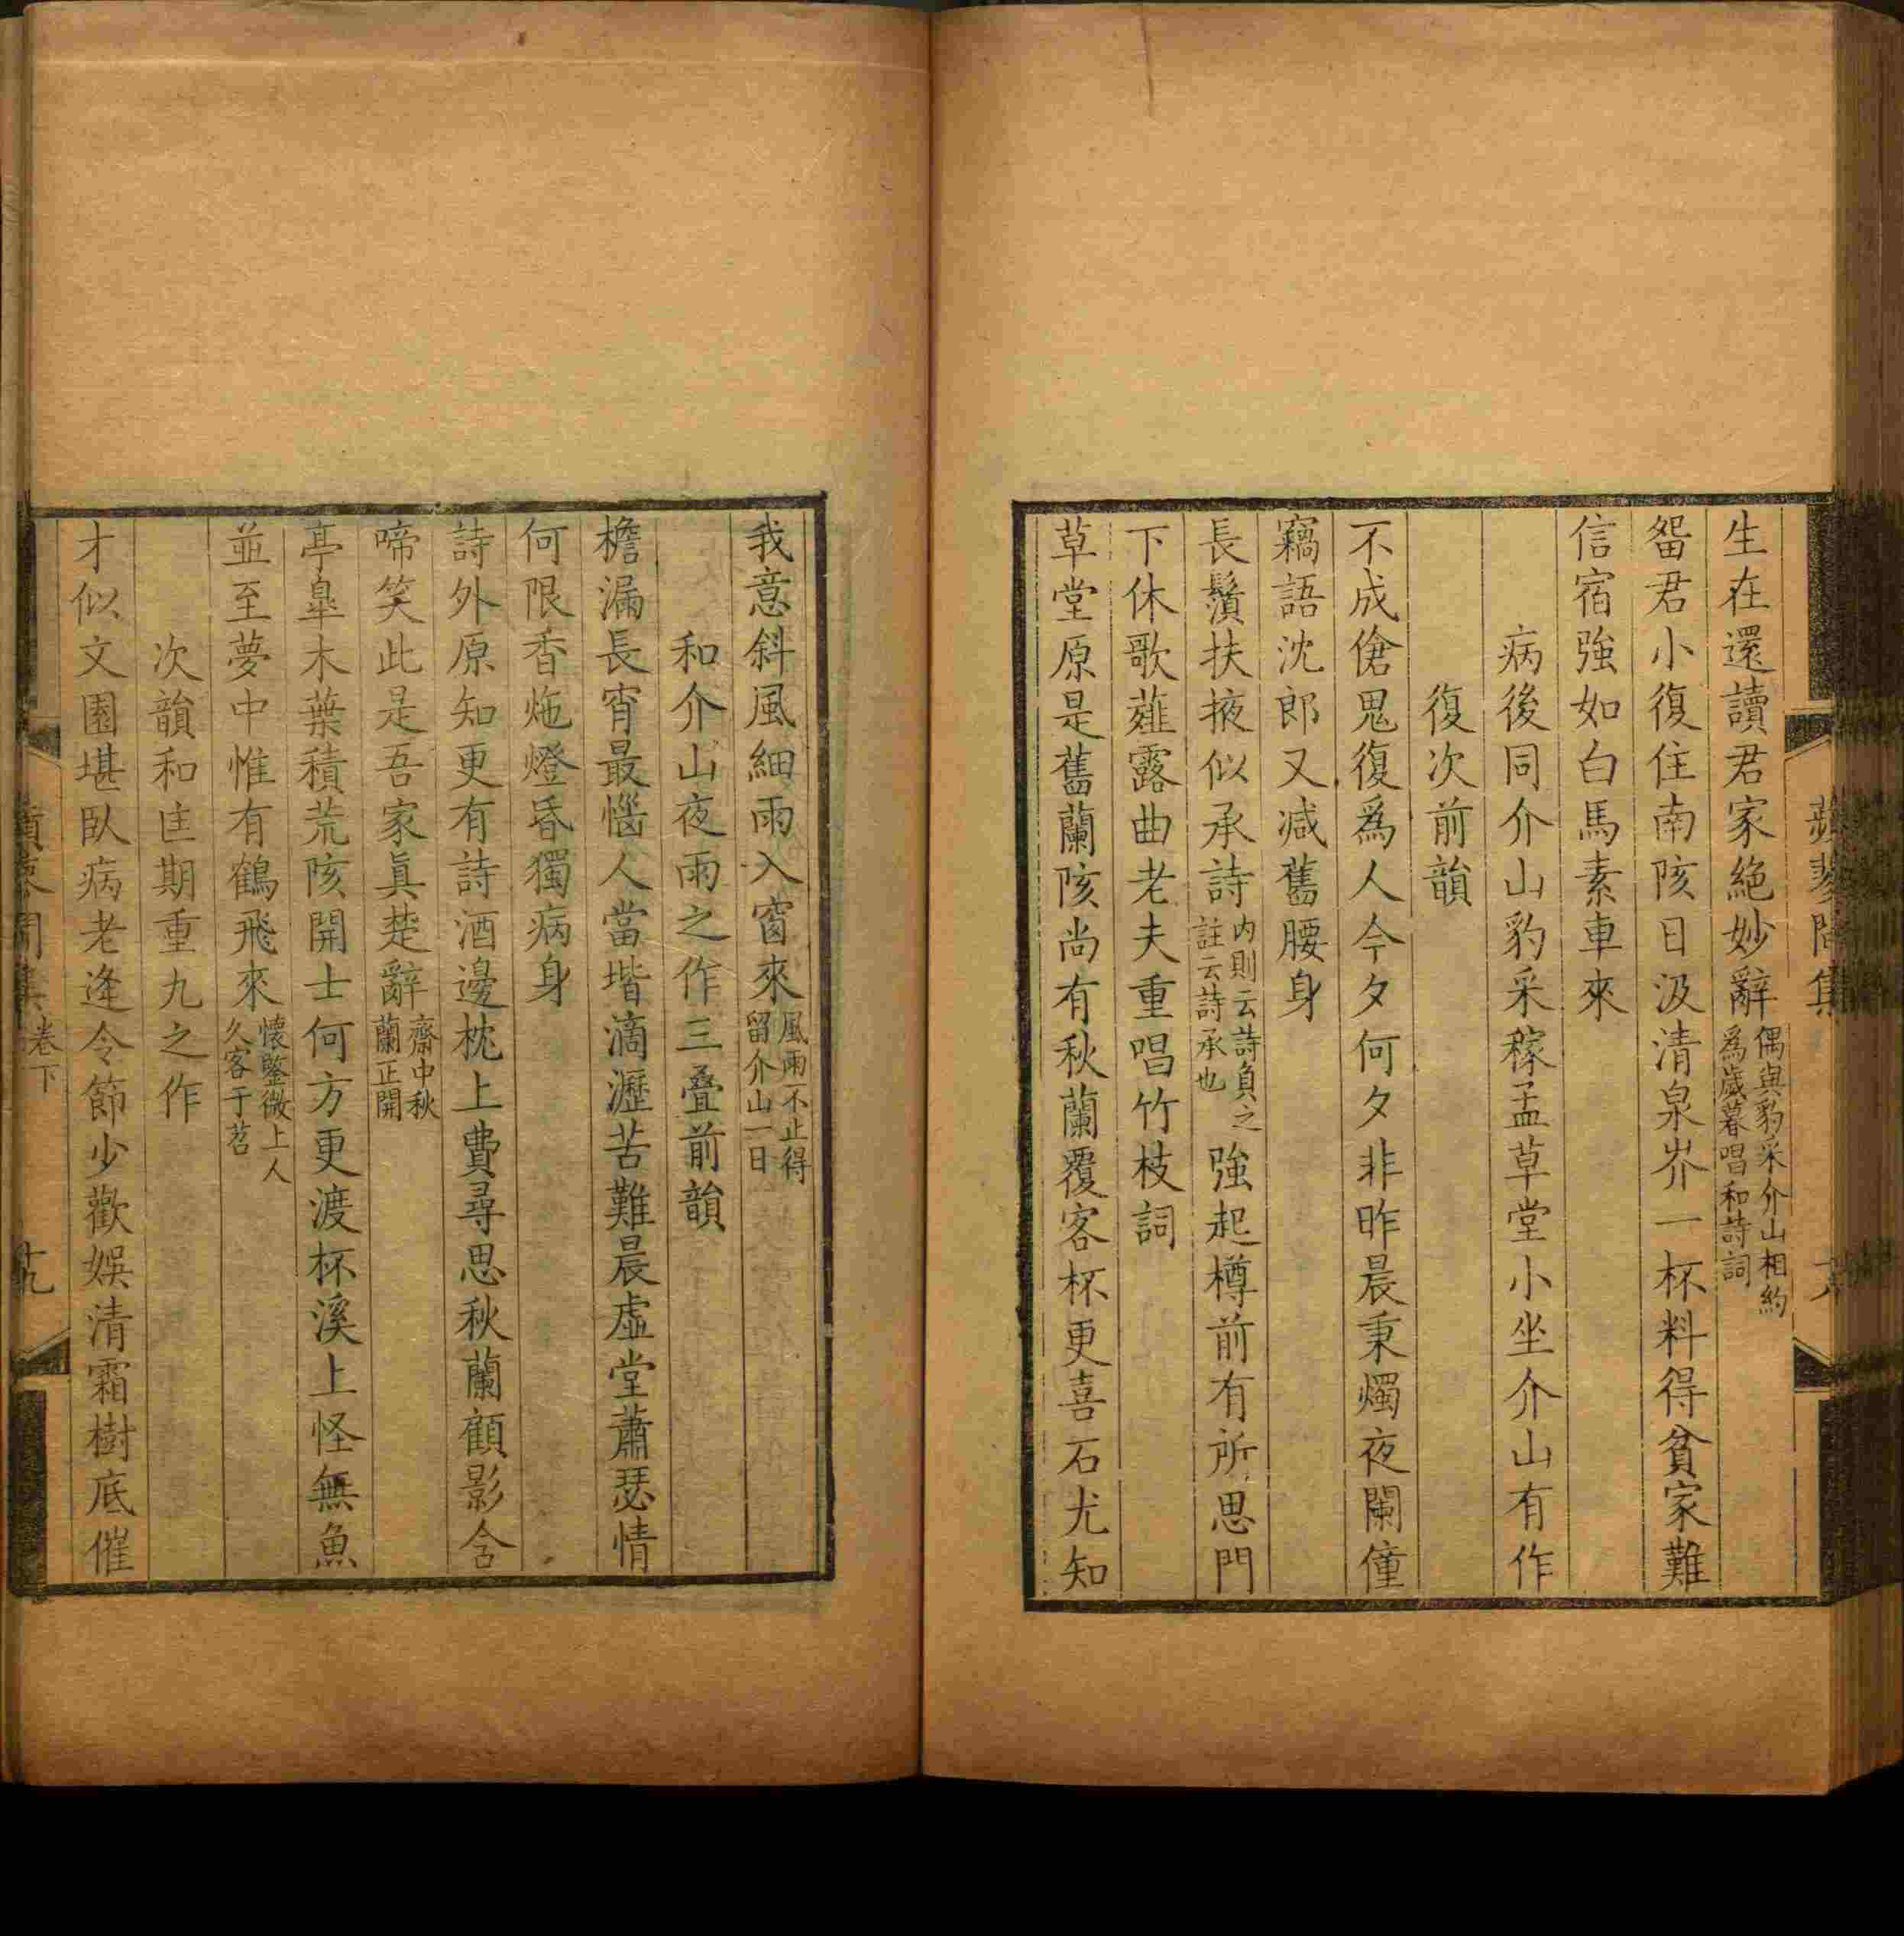 生在還讀君家絕妙辭偶與豹采介山相約為歲暮唱和詩詞
畱君小復住南陔日汲清泉岕一杯料得貧家難
信宿強如白馬素車來
病後同介山豹采稼孟草堂小坐介山有作
復次前韻
不成傖鬼復爲人今夕何夕非昨晨秉燭夜闌僮
竊語沈郎又减舊腰身
長鬚扶掖似承詩内則云詩負之註云詩承也強起樽前有所思門
下休歌薤露曲老夫重唱竹枝詞
草堂原是舊蘭陔尚有秋蘭覆客杯更喜石尤知
我意斜風細雨入窗來風雨不止得留介山一日
和介山夜雨之作三叠前韻
檐漏長宵最惱人當堦滴瀝苦難晨虛堂蕭瑟情
何限香炧燈昏獨病身
詩外原知更有詩酒邊枕上費尋思秋蘭顧影含
啼笑此是吾家眞楚辭齋中秋蘭正開
亭臯木葉積荒陔開士何方更渡杯溪上怪無魚
並至夢中惟有鶴飛來懷鑒微上人久客于苕
次韻和匡期重九之作
才似文園堪臥病老逢令節少歡娛清霜樹底催
卷下
十九